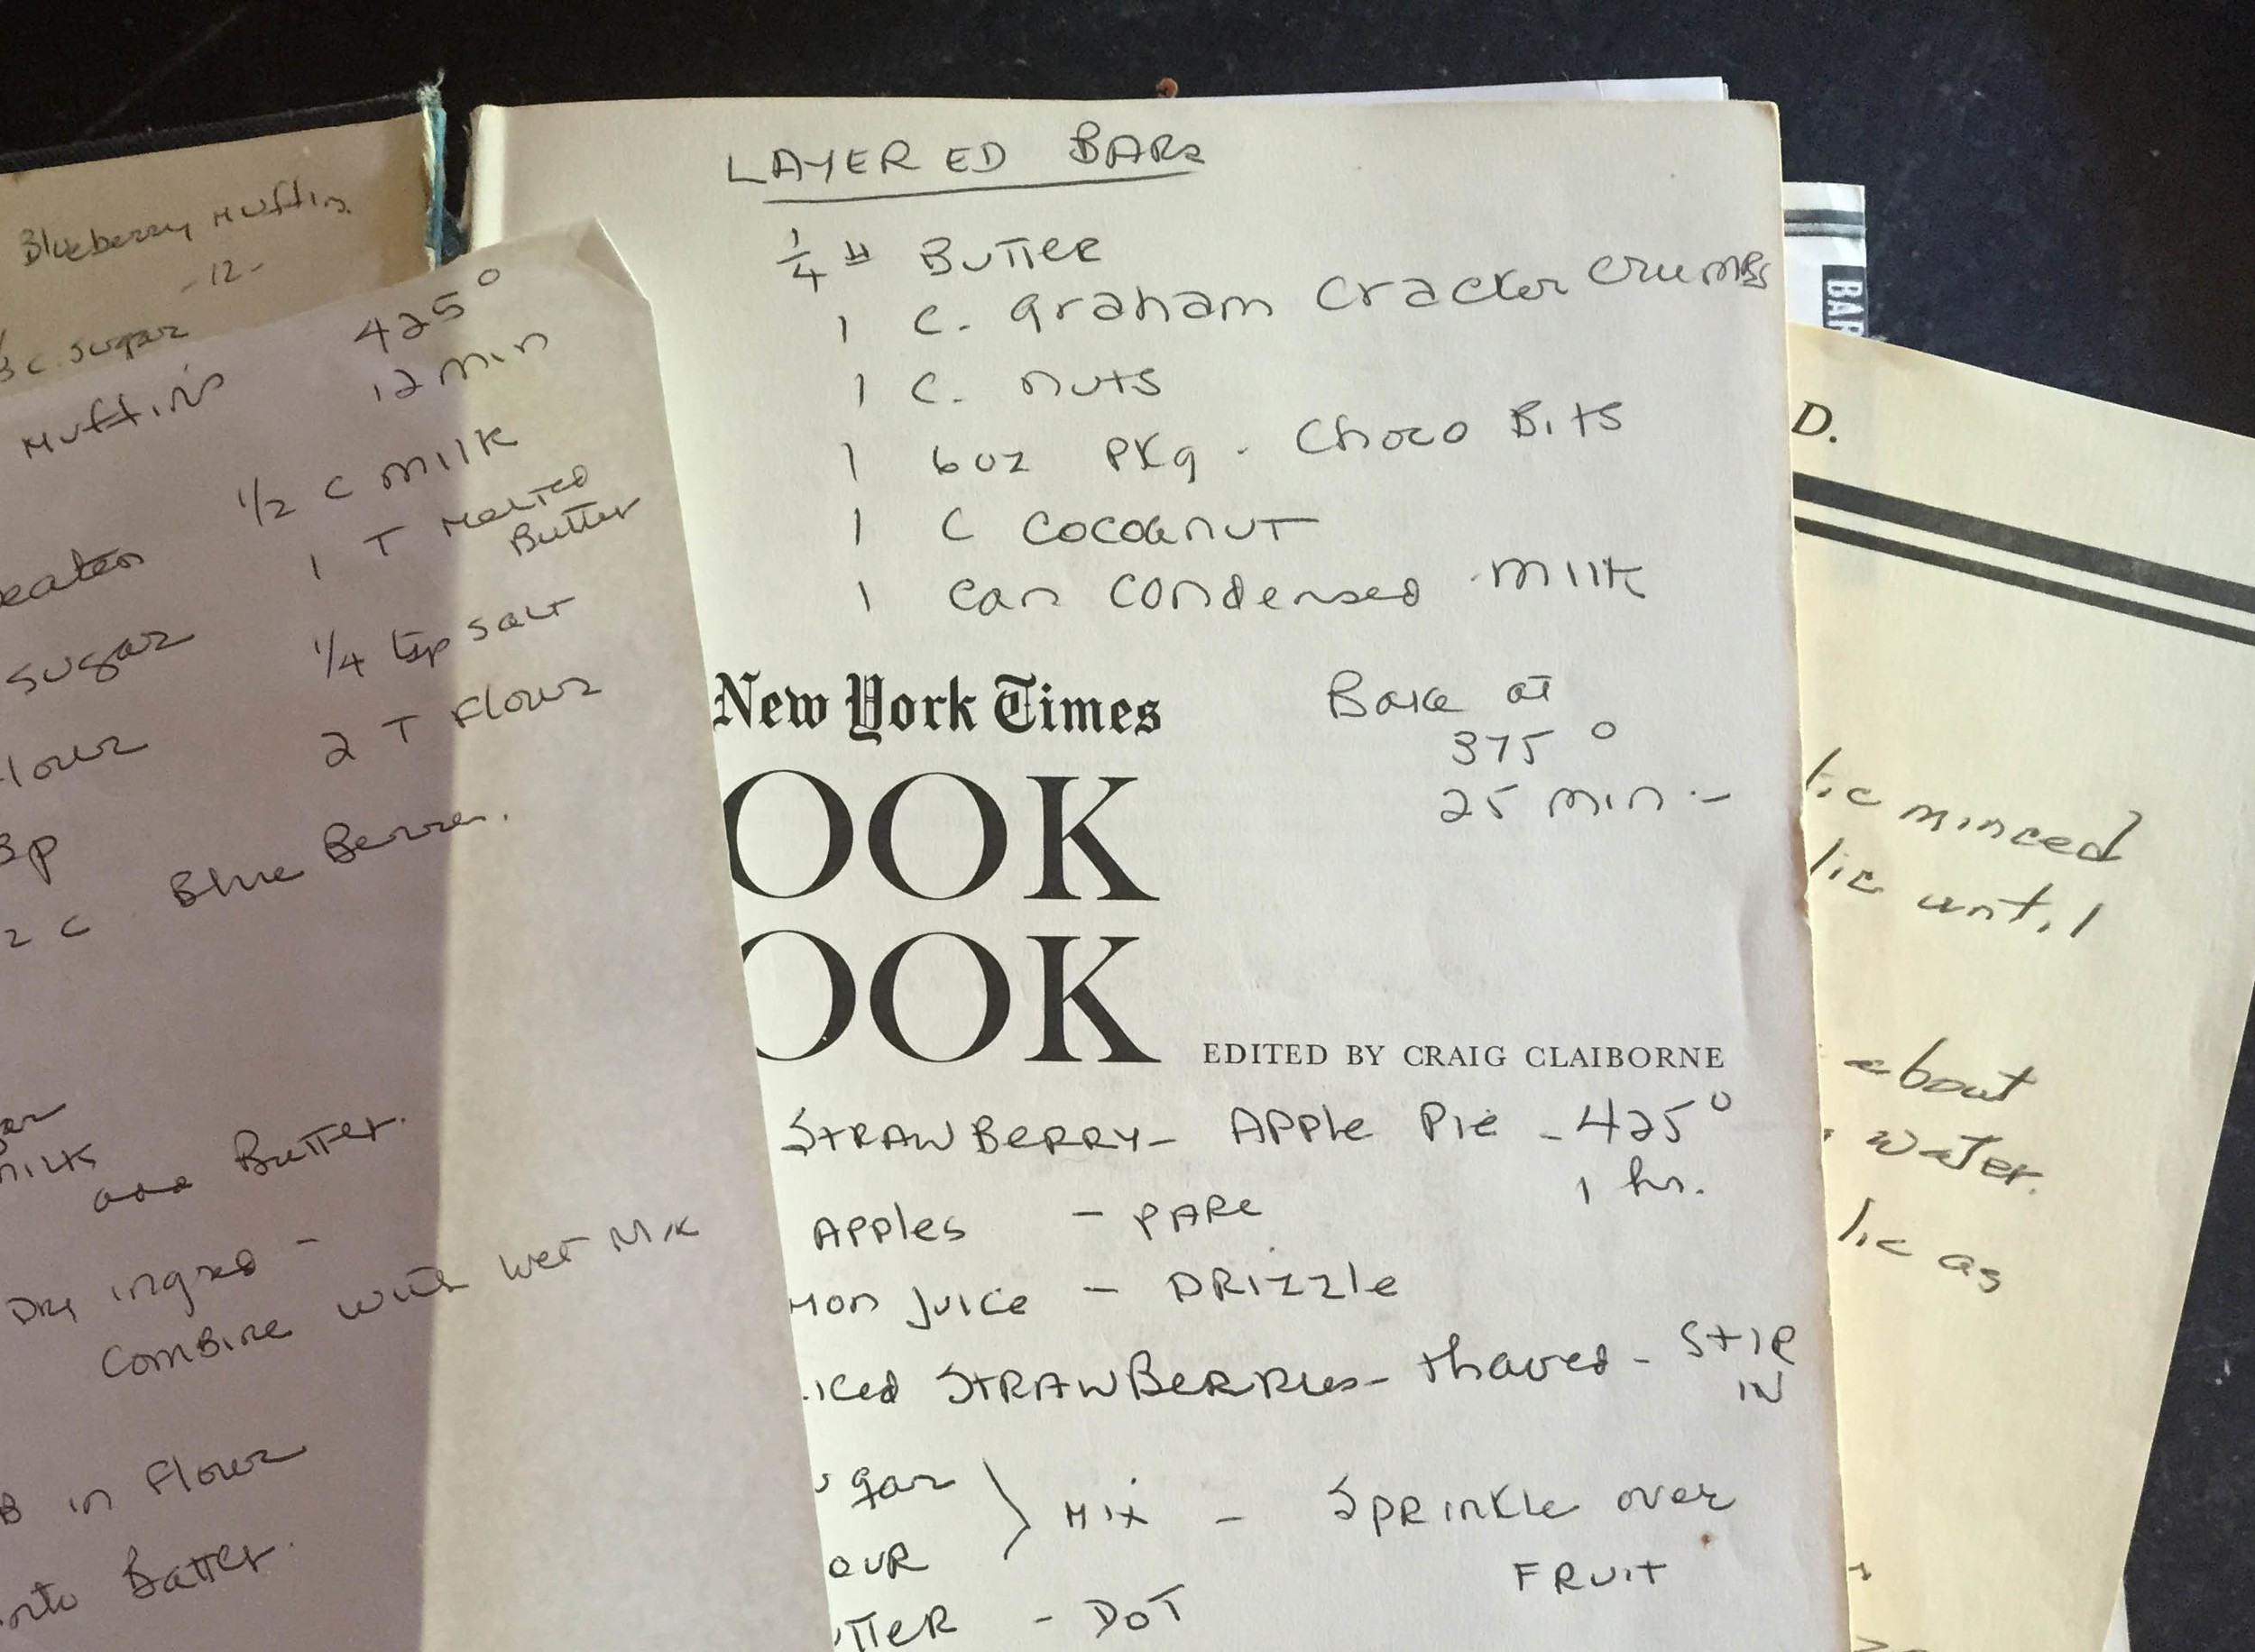 Blueberry Muffin
-12-
c. sugar
Muffins 425°
12 min
1/2 c milk
1 T Melted
Butter
eaten
1/4 tsp salt
sugar
2 T Flour
lour
Bp
2 c Blue Berries.
milk
add Butter.
Dry ingred -
Combine with wet Mix
B in Flour
into Batter.
LAYERED BARS
1/4 # BUTTER
1 C. graham cracker crumbs
1 C. nuts
1 6oz PKg. Choco Bits
1 C COCOANUT
1 can condensed milk
New York Times
Bake at
375°
25 min -
OOK
OOK
EDITED BY CRAIG CLAIBORNE
STRAWBERRY- APPle Pie - 425°
1 hr.
APPles - PARE
mon Juice - DRIZZle
iced STRAWBERRIES - thawed - STIR
IN
ugar
MIX - SPRINKLE over
OUR
FRUIT
UTTER - DOT
BAR
D.
lic minced
lic until
about
water.
lic as